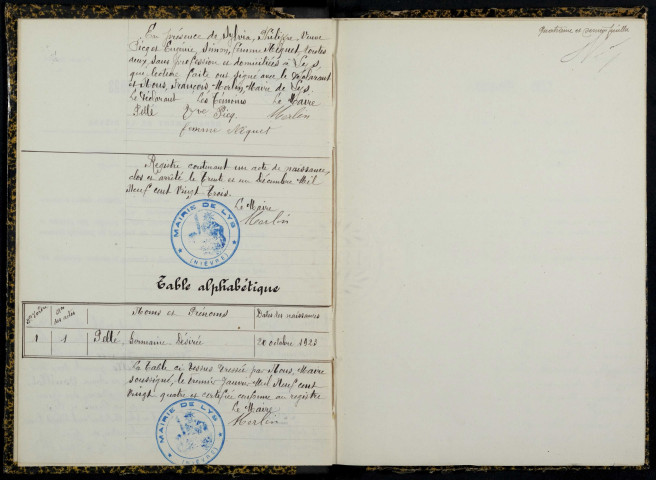 En présence de Sylvia, Philippe, Veuve
Sieg et Eugénie, Simon, femme Néguet, toutes
deux sans profession et domiciliées à Lys,
qui, lecture faite ont signé avec le Déclarant
et Nous, François, Merlin, Maire de Lys.
Le Déclarant Les Témoins Le Maire
Pellé Vve Sieg Merlin
femme Néguet
Registre contenant un acte de naissance,
clos et arrêté le trente et un Décembre Mil
Neuf cent Vingt trois.
Le Maire
Merlin
MAIRIE DE LYS
(NIÈVRE)
Table alphabétique
Nos des actes
Noms et Prénoms
Dates des naissances
1 1 Pellé Germaine Désirée 20 octobre 1923
La table ci-dessus dressée par Nous, Maire
soussigné, le premier Janvier Mil Neuf cent
Vingt quatre et certifiée conforme au registre
Le Maire
Merlin
MAIRIE DE LYS
(NIÈVRE)
Quatrième et dernier feuillet